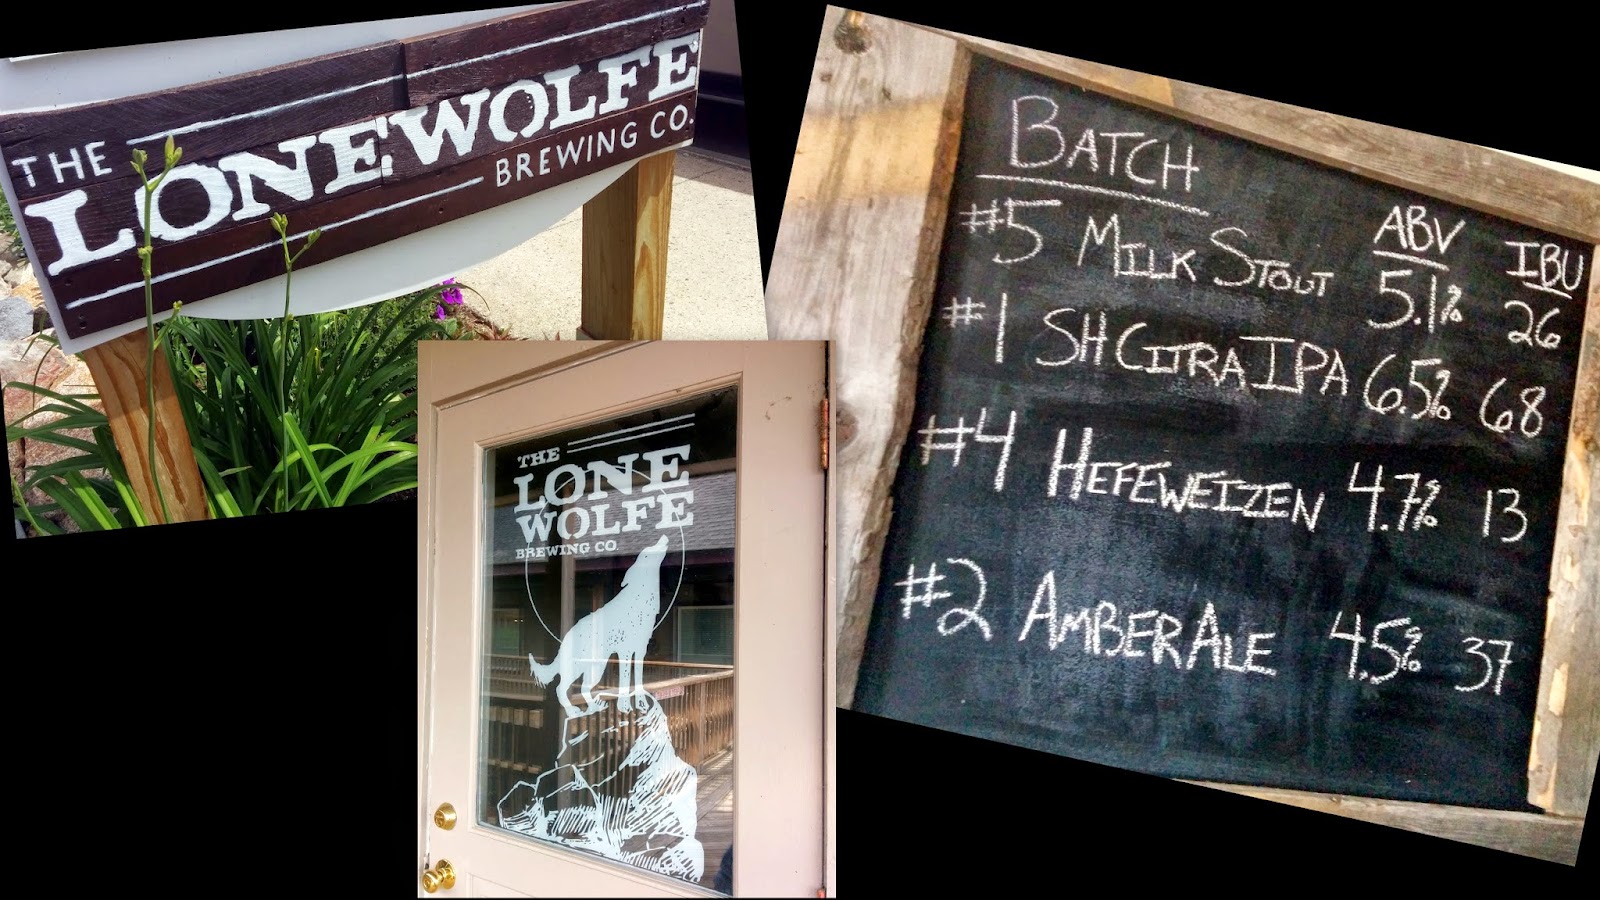 THE
LONEWOLFE
BREWING CO.
THE
LONE
WOLFE
BREWING CO.
BATCH
ABV IBU
#5 MILK STOUT 5.1% 26
#1 SH CITRA IPA 6.5% 68
#4 HEFEWEIZEN 4.7% 13
#2 AMBER ALE 4.5% 37